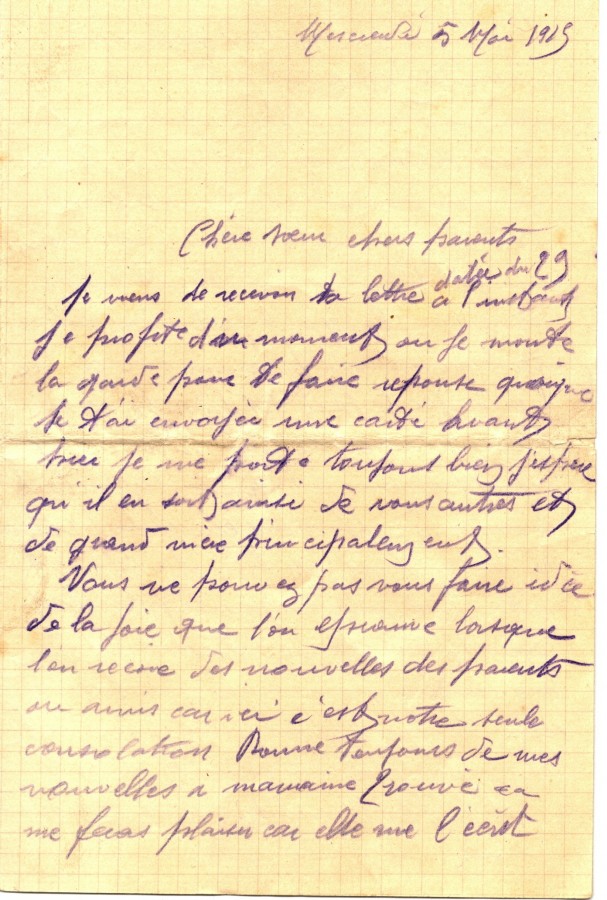 Mercredi 5 Mai 1915
Chère soeur chers parents
datée du 29
Je viens de recevoir ta lettre à l'instant
je profite d'un moment ou je monte
la garde pour te faire reponse quoique
je t'ai envoyée une carte avant
hier je me porte toujours bien j'espère
qu'il en soit ainsi de vous autres et
de grand mère principalement.
Vous ne pouvez pas vous faire idée
de la joie que l'on éprouve lorsque
l'on reçoive des nouvelles des parents
ou amis car ici c'est notre seule
consolation Donne toujours de mes
nouvelles a marraine ça
me feras plaisir car elle me l'écrit